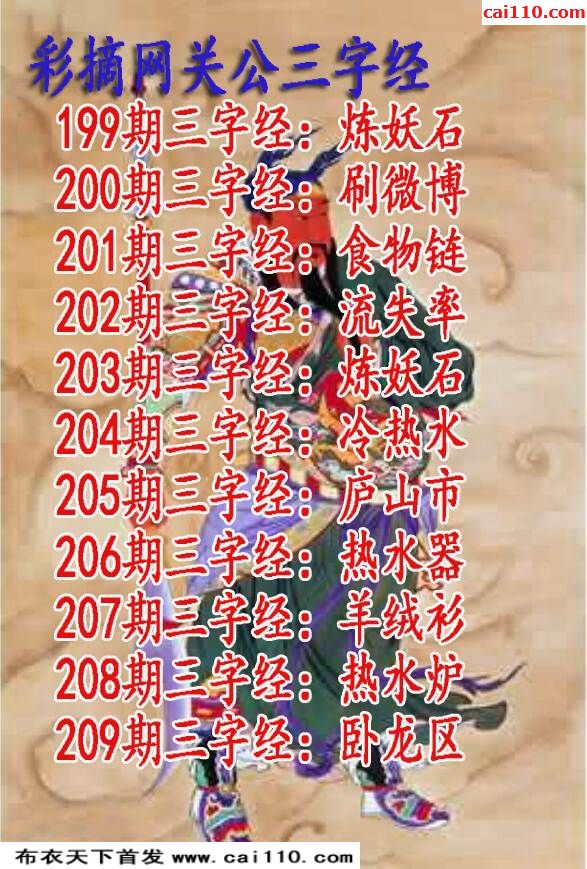 cai110.com
彩摘网关公三字经
199期三字经：炼妖石
200期三字经：刷微博
201期三字经：食物链
202期三字经：流失率
203期三字经：炼妖石
204期三字经：冷热水
205期三字经：庐山市
206期三字经：热水器
207期三字经：羊绒衫
208期三字经：热水炉
209期三字经：卧龙区
布衣天下首发 www.cai110.com